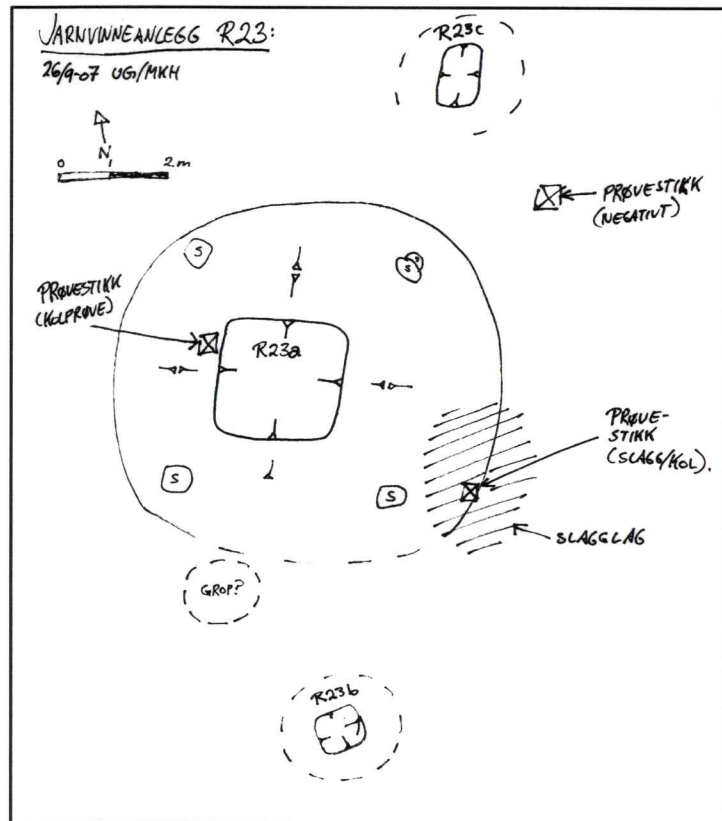 JARNVINNEANLEGG R23:
26/9-07 UG/MKH
N
0 1 2 m
R23c
PRØVESTIKK
(NEGATIVT)
S
S
PRØVESTIKK
(KOLPRØVE)
R23a
PRØVE-
STIKK
(SLAGG/KOL).
S
S
SLAGGLAG
GROP?
R23b